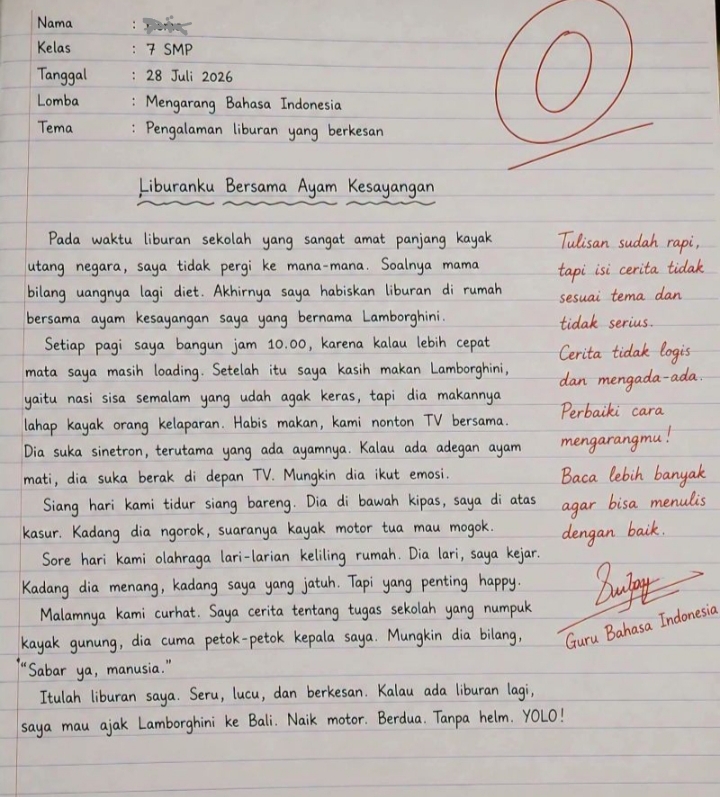 Nama :
Kelas : 7 SMP
Tanggal : 28 Juli 2026
Lomba : Mengarang Bahasa Indonesia
Tema : Pengalaman liburan yang berkesan
0
Liburanku Bersama Ayam Kesayangan
Pada waktu liburan sekolah yang sangat amat panjang kayak
utang negara, saya tidak pergi ke mana-mana. Soalnya mama
bilang uangnya lagi diet. Akhirnya saya habiskan liburan di rumah
bersama ayam kesayangan saya yang bernama Lamborghini.
Setiap pagi saya bangun jam 10.00, karena kalau lebih cepat
mata saya masih loading. Setelah itu saya kasih makan Lamborghini,
yaitu nasi sisa semalam yang udah agak keras, tapi dia makannya
lahap kayak orang kelaparan. Habis makan, kami nonton TV bersama.
Dia suka sinetron, terutama yang ada ayamnya. Kalau ada adegan ayam
mati, dia suka berak di depan TV. Mungkin dia ikut emosi.
Siang hari kami tidur siang bareng. Dia di bawah kipas, saya di atas
kasur. Kadang dia ngorok, suaranya kayak motor tua mau mogok.
Sore hari kami olahraga lari-larian keliling rumah. Dia lari, saya kejar.
Kadang dia menang, kadang saya yang jatuh. Tapi yang penting happy.
Malamnya kami curhat. Saya cerita tentang tugas sekolah yang numpuk
kayak gunung, dia cuma petok-petok kepala saya. Mungkin dia bilang,
"Sabar ya, manusia."
Itulah liburan saya. Seru, lucu, dan berkesan. Kalau ada liburan lagi,
saya mau ajak Lamborghini ke Bali. Naik motor. Berdua. Tanpa helm. YOLO!
Tulisan sudah rapi,
tapi isi cerita tidak
sesuai tema dan
tidak serius.
Cerita tidak logis
dan mengada-ada.
Perbaiki cara
mengarangmu!
Baca lebih banyak
agar bisa menulis
dengan baik.
Guru Bahasa Indonesia